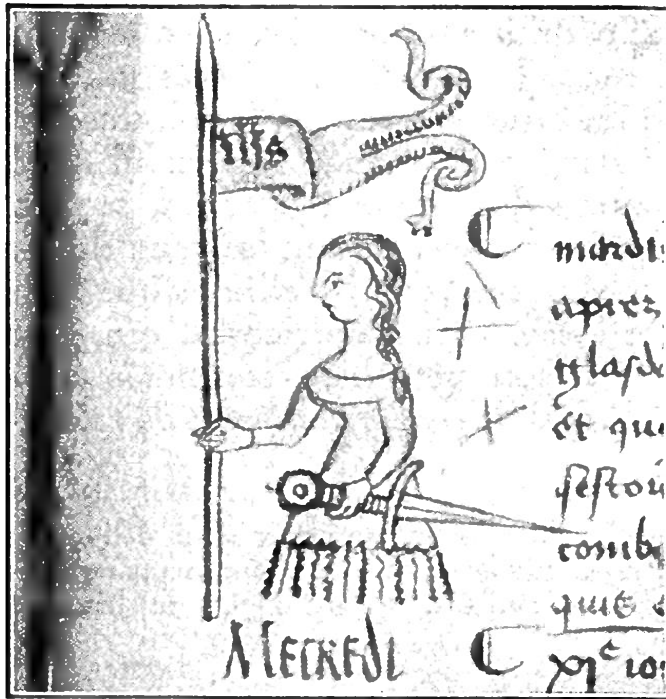 yhs
mardi
apres
glasd
et que
sestoi
comb
qui
Mecredi
xje